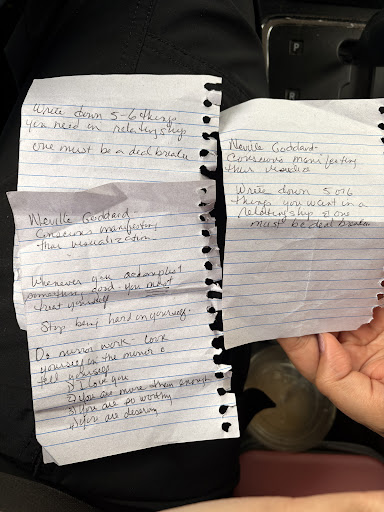 Write down 5-6 things
you need in relationship
one must be a deal breaker
Neville Goddard
Conscious manifesting
thru visualization
Whenever you accomplish
something good - you must
treat yourself
Stop being hard on yourself.
Do mirror work - look
yourself in the mirror &
tell yourself
1) I love you
2) You are more than enough
3) You are so worthy
4) You are deserving
Neville Goddard-
Conscious manifesting
thru visualiz
Write down 5 or 6
things you want in a
relationship & one
must be deal breaker
P